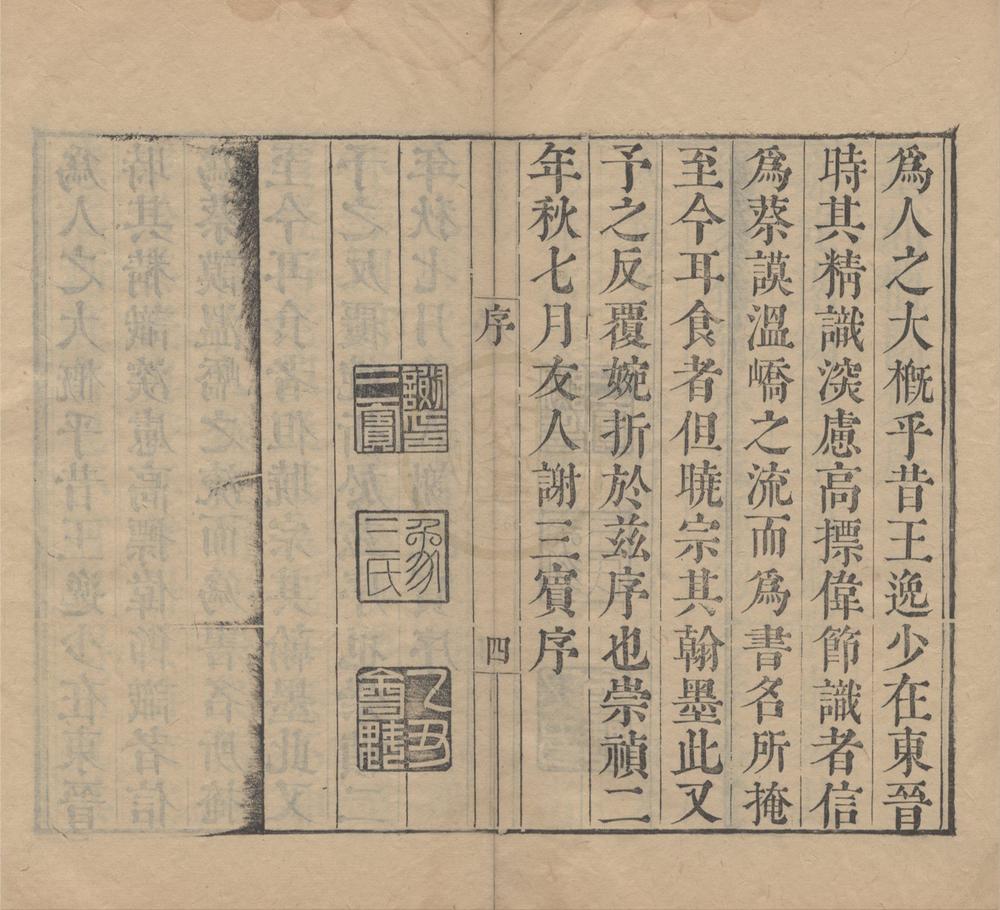 爲人之大槪乎昔王逸少在東晉
時其精識深慮高摽偉節識者信
爲蔡謨溫嶠之流而爲書名所掩
至今耳食者但曉宗其翰墨此又
予之反覆婉折於茲序也崇禎二
年秋七月友人謝三賓序
序
四
謝三賓印
象三氏
乙丑會魁